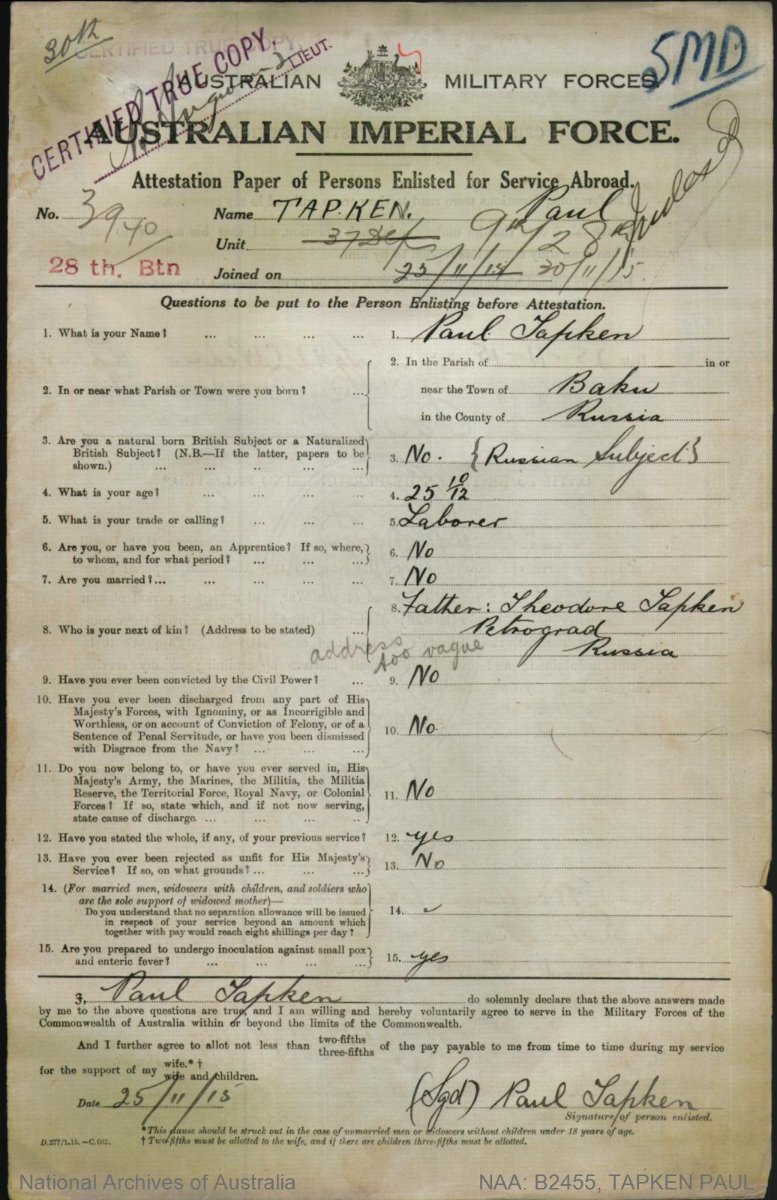 30th
CERTIFIED TRUE COPY
CERTIFIED TRUE COPY.
LIEUT.
SMD
AUSTRALIAN MILITARY FORCES
AUSTRALIAN IMPERIAL FORCE.
Attestation Paper of Persons Enlisted for Service Abroad.
No. 3940
Name TAPKEN. Paul
Unit 9th/28th
28 th. Btn
Joined on 25/11/15 30/11/15.
Questions to be put to the Person Enlisting before Attestation.
1. What is your Name? ... ... ... ... 1. Paul Tapken
2. In or near what Parish or Town were you born? ... 2. In the Parish of in or
near the Town of Baku
in the County of Russia
3. Are you a natural born British Subject or a Naturalized
British Subject? (N.B.—If the latter, papers to be
shown.) ... ... ... ... 3. No. {Russian Subject}
4. What is your age? ... ... ... ... 4. 25 10/12
5. What is your trade or calling? ... ... ... 5. Laborer
6. Are you, or have you been, an Apprentice? If so, where,
to whom, and for what period? ... ... ... 6. No
7. Are you married?... ... ... ... ... 7. No
8. Who is your next of kin? (Address to be stated) ... 8. Father: Theodore Tapken
Petrograd
Russia
address
too vague
9. Have you ever been convicted by the Civil Power? ... 9. No
10. Have you ever been discharged from any part of His
Majesty's Forces, with Ignominy, or as Incorrigible and
Worthless, or on account of Conviction of Felony, or of a
Sentence of Penal Servitude, or have you been dismissed
with Disgrace from the Navy? ... ... ... 10. No.
11. Do you now belong to, or have you ever served in, His
Majesty's Army, the Marines, the Militia, the Militia
Reserve, the Territorial Force, Royal Navy, or Colonial
Forces? If so, state which, and if not now serving,
state cause of discharge ... ... ... ... 11. No
12. Have you stated the whole, if any, of your previous service? 12. yes
13. Have you ever been rejected as unfit for His Majesty's
Service? If so, on what grounds?... ... ... 13. No
14. (For married men, widowers with children, and soldiers who
are the sole support of widowed mother)—
Do you understand that no separation allowance will be issued
in respect of your service beyond an amount which
together with pay would reach eight shillings per day? 14.
15. Are you prepared to undergo inoculation against small pox
and enteric fever? ... ... ... ... 15. yes
I, Paul Tapken do solemnly declare that the above answers made
by me to the above questions are true, and I am willing and hereby voluntarily agree to serve in the Military Forces of the
Commonwealth of Australia within or beyond the limits of the Commonwealth.
And I further agree to allot not less than two-fifths three-fifths of the pay payable to me from time to time during my service
for the support of my wife.* † wife and children.
Date 25/11/15
(Sgd) Paul Tapken
Signature of person enlisted.
*This clause should be struck out in the case of unmarried men or widowers without children under 18 years of age.
D.377/1.15.—C.662. † Two-fifths must be allotted to the wife, and if there are children three-fifths must be allotted.
National Archives of Australia NAA: B2455, TAPKEN PAUL